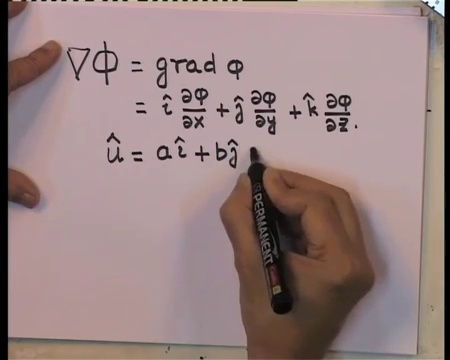 ∇Φ = grad φ
= î ∂φ/∂x + ĵ ∂φ/∂y + k̂ ∂φ/∂z.
û = aî + bĵ
PERMANENT